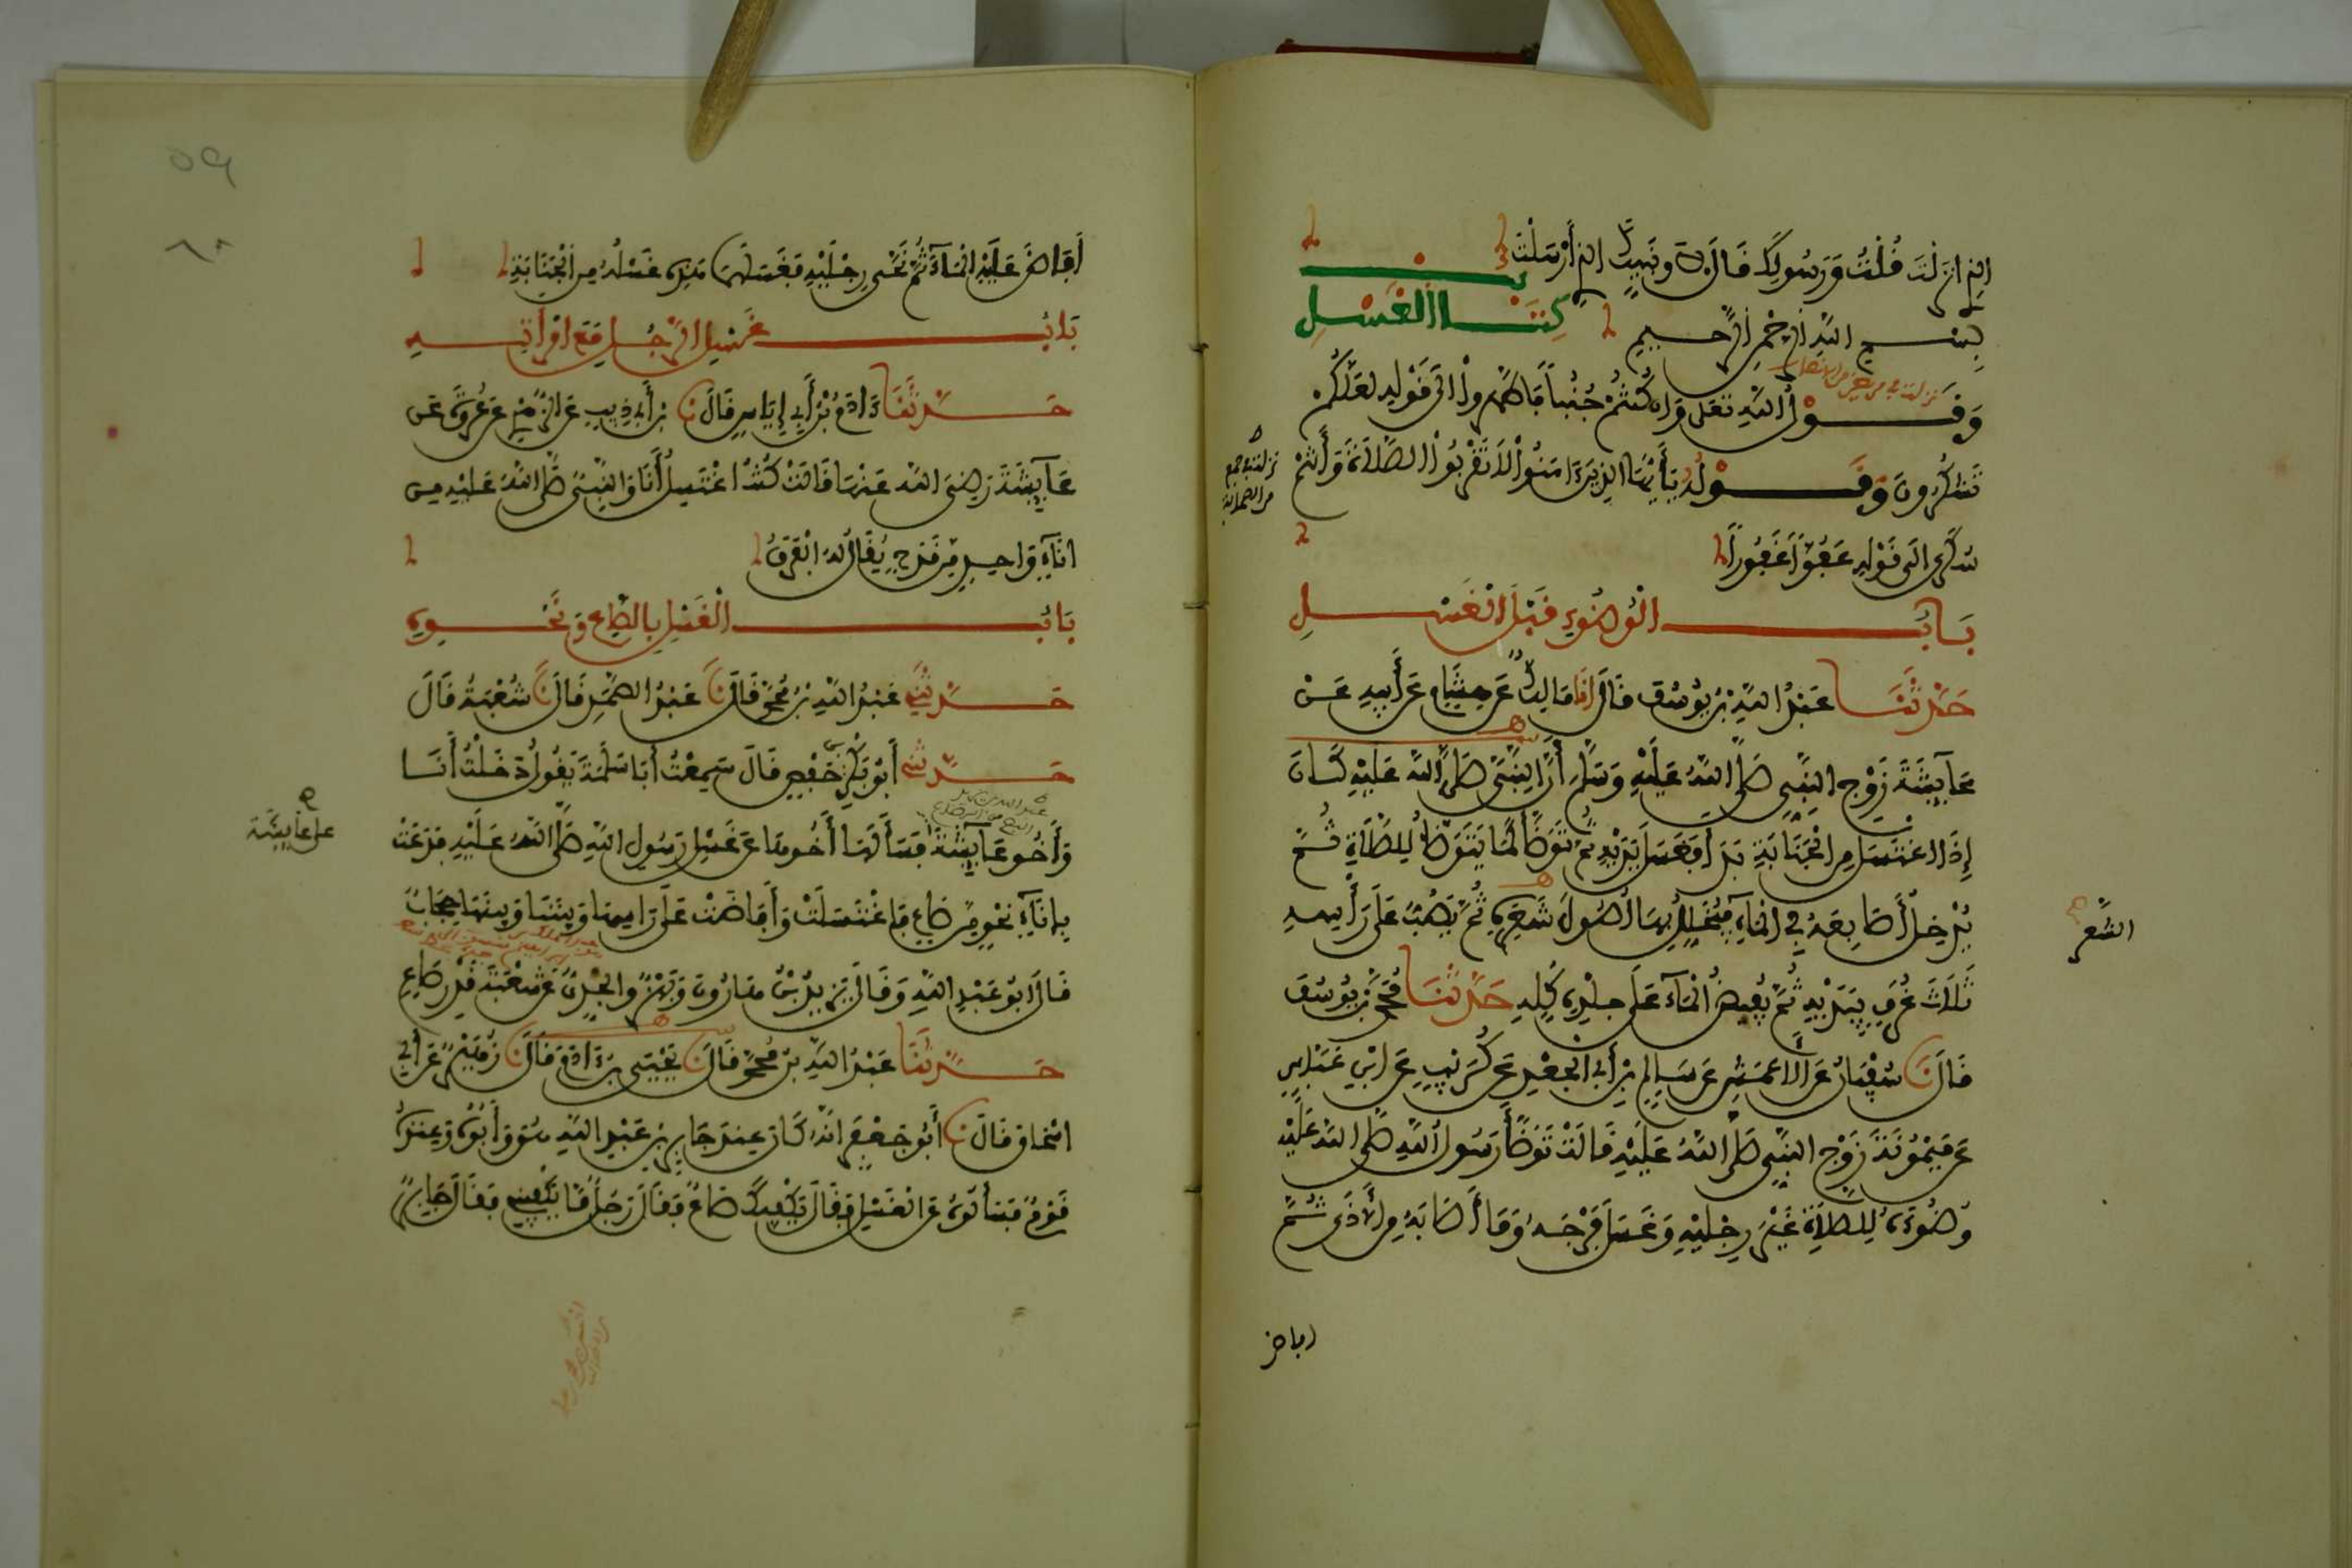 الذي انزلت قُلْتُ وَرَسُولِكَ قَالَ لا ونَبِيِّكَ الذِي أَرْسَلْتَ
بِسْمِ اللَّهِ الرَّحْمَنِ الرَّحِيمِ
كِتَابُ الْغُسْلِ
وَقَوْلُ اللَّهِ تَعَلَى وَإِن كُنتُمْ جُنُباً فَاطَّهَّرُواْ الَى قَوْلِهِ لَعَلَّكُمْ
تَشْكُرُونَ وَقَوْلُهُ يَأَيُّهَا الذِينَ ءَامَنُواْ لاَ تَقْرَبُواْ الصَّلاَةَ وَأَنتُمْ
سُكَارَى الَى قَوْلِهِ عَفُوّاً غَفُوراً
بَابُ الْوُضُوءِ قَبْلَ الْغُسْلِ
حَدَّثَنَا عَبْدُ اللَّهِ بْنُ يُوسُفَ قَالَ انَا مَالِكٌ عَن هِشَامٍ عَنَ أَبِيهِ عَنْ
عَآيِشَةَ زَوْجِ النَّبِيِّ صَلَّى اللَّهُ عَلَيْهِ وَسَلَّمَ أَنَّ النَّبِيَّ صَلَّى اللَّهُ عَلَيْهِ كَانَ
إِذَا اغْتَسَلَ مِنَ الْجَنَابَةِ بَدَأَ فَغَسَلَ يَدَيْهِ ثُمَّ تَوَضَّأَ كَمَا يَتَوَضَّأُ لِلصَّلاَةِ ثُمَّ
يُدْخِلُ أَصَابِعَهُ فِي الْمَآءِ فَيُخَلِّلُ بِهَا أُصُولَ شَعَرِهِ ثُمَّ يَصُبُّ عَلَى رَأْسِهِ
الشَّعَرِ
ثَلاَثَ غُرَفٍ بِيَدَيْهِ ثُمَّ يُفِيضُ الْمَآءَ عَلَى جِلْدِهِ كُلِّهِ حَدَّثَنَا مُحَمَّدُ بْنُ يُوسُفَ
قَالَ نَا سُفْيَانُ عَنِ الأَعْمَشِ عَن سَالِمِ بْنِ أَبِي الْجَعْدِ عَن كُرَيْبٍ عَنِ ابْنِ عَبَّاسٍ
عَن مَيْمُونَةَ زَوْجِ النَّبِيِّ صَلَّى اللَّهُ عَلَيْهِ قَالَتْ تَوَضَّأَ رَسُولُ اللَّهِ صَلَّى اللَّهُ عَلَيْهِ
وُضُوءَهُ لِلصَّلاَةِ غَيْرَ رِجْلَيْهِ وَغَسَلَ فَرْجَهُ وَمَا أَصَابَهُ مِنَ الأَذَى ثُمَّ
افاض
أَفَاضَ عَلَيْهِ الْمَآءَ ثُمَّ نَحَّى رِجْلَيْهِ فَغَسَلَهُمَا هَذِهِ غَسْلُهُ مِنَ الْجَنَابَةِ
بَابُ غُسْلِ الرَّجُلِ مَعَ امْرَأَتِهِ
حَدَّثَنَا ءَادَمُ بْنُ أَبِي إِيَاسٍ قَالَ نَا بْنُ أَبِي ذِيبٍ عَنِ الزُّهْرِيِّ عَن عُرْوَةَ عَنْ
عَآيِشَةَ رَضِيَ اللَّهُ عَنْهَا قَالَتْ كُنْتُ اغْتَسِلُ أَنَا وَالنَّبِيُّ صَلَّى اللَّهُ عَلَيْهِ مِن
انَآءٍ وَاحِدٍ مِن قَدَحٍ يُقَالُ لَهُ الْفَرَقُ
بَابُ الْغُسْلِ بِالصَّاعِ وَنَحْوِهِ
حَدَّثَنِي عَبْدُ اللَّهِ بْنُ مُحَمَّدٍ قَالَ نَا عَبْدُ الصَّمَدِ قَالَ نَا شُعْبَةُ قَالَ
حَدَّثَنِي أَبُو بَكْرِ بْنُ حَفْصٍ قَالَ سَمِعْتُ أَبَا سَلَمَةَ يَقُولُ دَخَلْتُ أَنَا
وَأَخُو عَآيِشَةَ فَسَأَلَهَا أَخُوهَا عَن غُسْلِ رَسُولِ اللَّهِ صَلَّى اللَّهُ عَلَيْهِ فَدَعَتْ
على عايشة
بِإِنَآءٍ نَحْوٍ مِن صَاعٍ فَاغْتَسَلَتْ وَأَفَاضَتْ عَلَى رَاسِهَا وَبَيْنَنَا وَبَيْنَهَا حِجَابٌ
قَالَ ابُو عَبْدِ اللَّهِ وَقَالَ يَزِيدُ بْنُ هَارُونَ وَبَهْزٌ وَالْجُدِّيُّ عَن شُعْبَةَ قَدْرِ صَاعٍ
حَدَّثَنَا عَبْدُ اللَّهِ بْنُ مُحَمَّدٍ قَالَ نَا يَحْيَى بْنُ ءَادَمَ قَالَ نَا زُهَيْرٌ عَنَ أَبِي
اسْحَاقَ قَالَ نَا أَبُو جَعْفَرٍ انَّهُ كَانَ عِندَ جَابِرِ بْنِ عَبْدِ اللَّهِ هُوَ وَأَبُوهُ وَعِندَهُ
قَوْمٌ فَسَأَلُوهُ عَنِ الْغُسْلِ فَقَالَ يَكْفِيكَ صَاعٌ فَقَالَ رَجُلٌ مَا يَكْفِينِي فَقَالَ جَابِرٌ